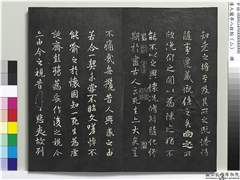 知老之將至及其所之既惓情
隨事遷感慨係之矣向之所
欣俛仰之間以為陳迹猶不
能不以之興懷況脩短隨化終
期於盡古人云死生亦大矣豈
不痛哉每攬昔人興感之由
若合一契未嘗不臨文嗟悼不
能喻之於懷固知一死生為虛
誕齊彭殤為妄作後之視今
亦由今之視昔悲夫故列